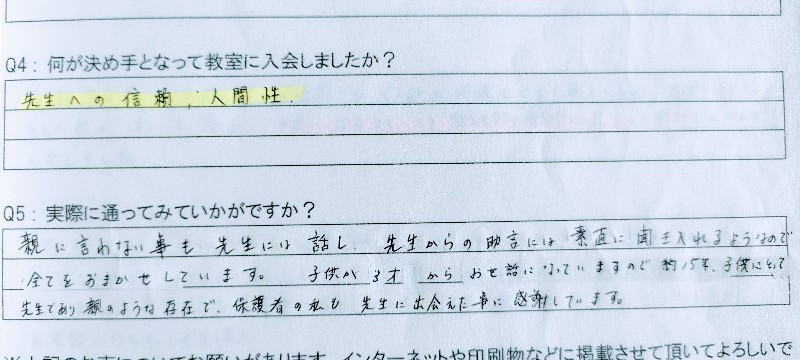 Q4：何が決め手となって教室に入会しましたか？
先生への信頼、人間性.
Q5：実際に通ってみていかがですか？
親に言わない事も先生には話し、先生からの助言には、素直に聞き入れるようなので
全ておまかせしています。子供が3才からお世話になっていますので約15年、子供にとって
先生であり親のような存在で、保護者の私も先生に出会えた事に感謝しています。
お願いがあります。インターネットや印刷物などに掲載させて頂いてよろしいで